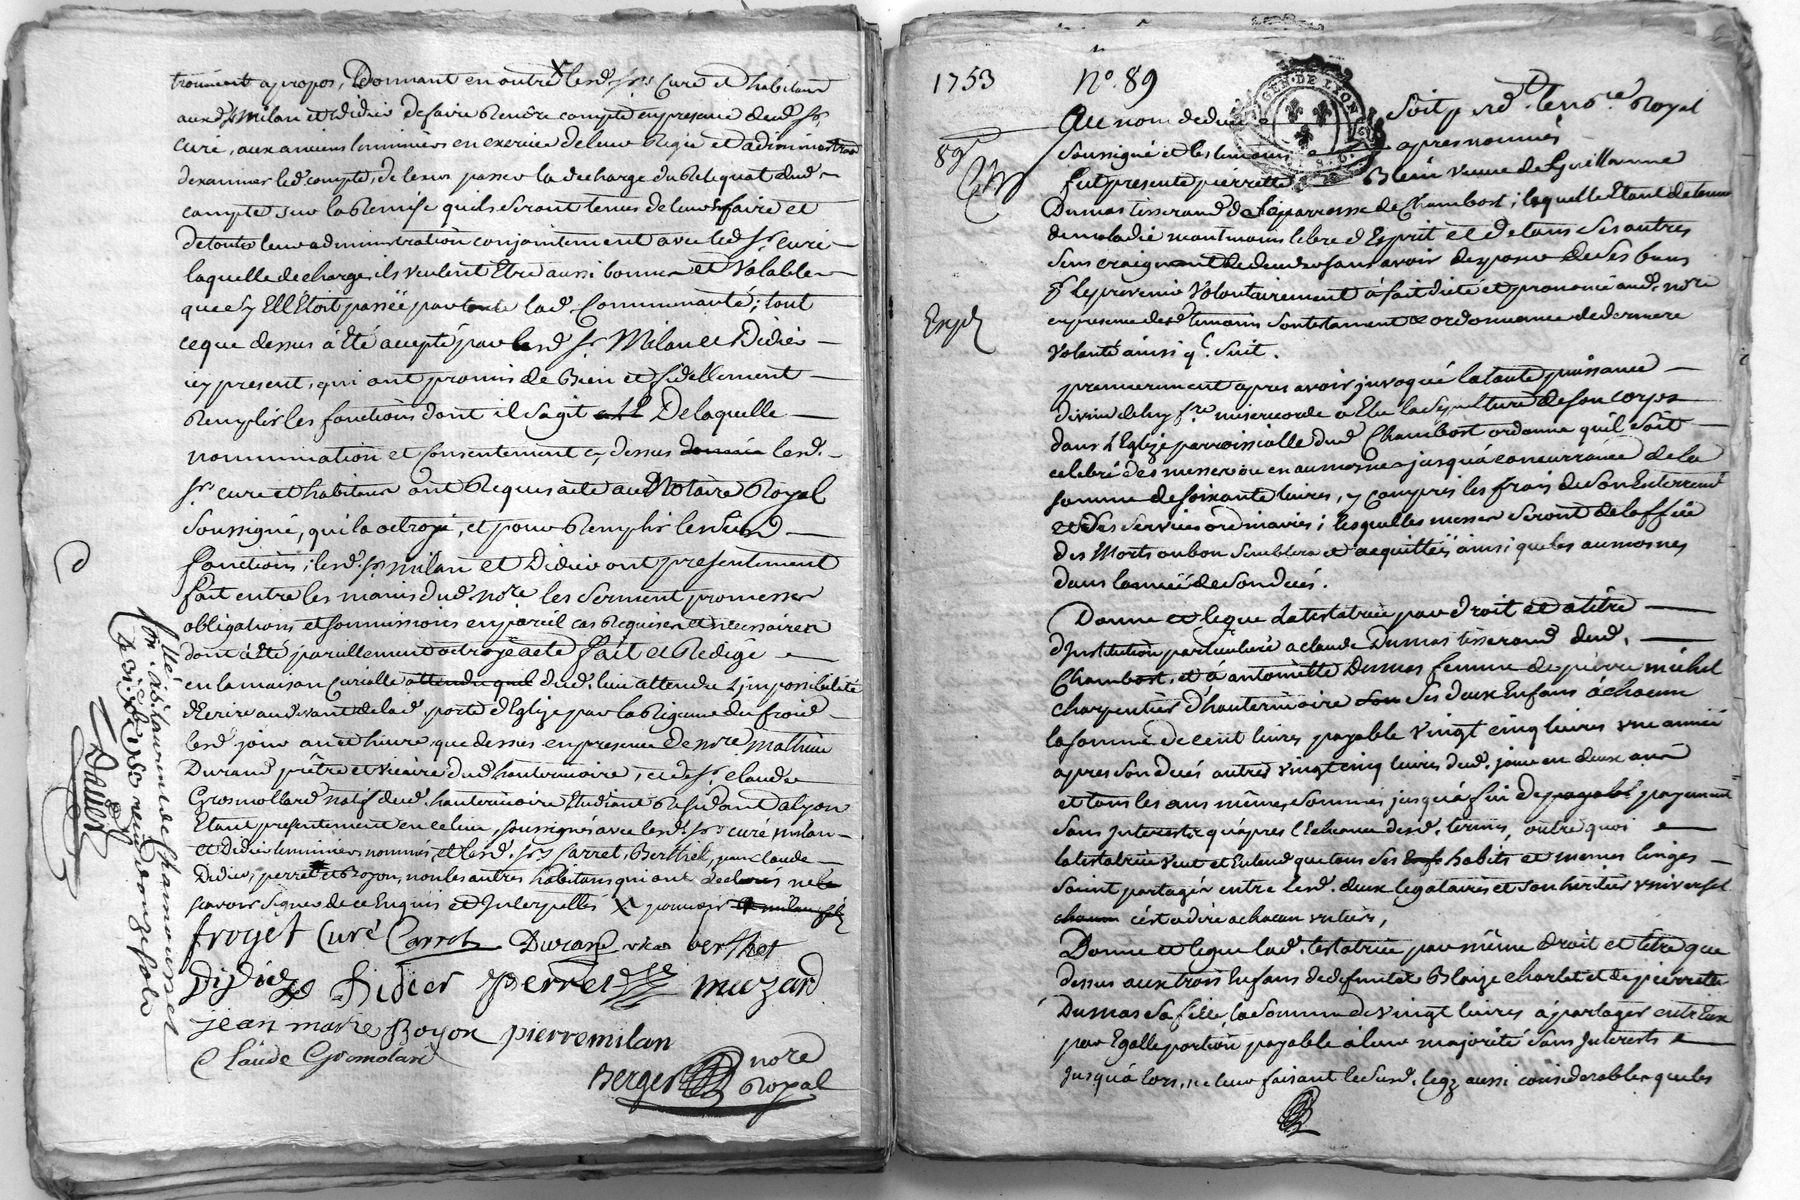 trouvent apropos, Donnant en outre lesd. srs Cure et habitans
auxd. srs Milan et Didier de faire Rendre compte en presence dud. sr
curé, aux anciens luminiers en exercice de leur Regie et administration
dexaminer led. compte, de leur passer la decharge du Reliquat dud.
compte sur la Remise quils seront tenus de leur faire et
de toutte leur administration conjointement avec led. sr. curé
laquelle decharge ils veulent Etre aussi bonne et Valable
que sy Elle Etoit passée par toute lad. Communauté; tout
ce que dessus à Eté accepté par lesd. srs Milan et Didier
icy present, qui ont promis de Bien et fidellement
Remplir les fonctions dont il sagit De laquelle
nommination et Consentement cy dessus donnée lesd.
srs. curé et habitans ont Requis acte au Notaire Royal
soussigné, qui la octroyé, et pour Remplir lesd.
fonctions; lesd. srs milan et Didier ont presentement
fait entre les mains dud. nore les serment promesses
obligations et soumissions en pareil cas Requises et necessaires
dont à Eté pareillement octroyé acte fait et Redigé
en la maison Curialle attendu quil dud. lieu attendu L'impossibilité
dEcrire au devant de lad. porte d'Eglize par la Rigueur du froid
lesd. jour an et heure que dessus en presence de mre mathieu
Durand prêtre et vicaire dud. hauterivoire, et de sr. claude
Grosmollard natif dud. hauterivoire Etudiant Residant a Lyon
Etant presentement en ce lieu, soussignés avec lesd. srs curé milan
et Didier luminiers nommés, et lesd. srs Carret, Berthet, jean claude
Didier, perret et Boyon, non les autres habitans qui ont declarés ne
scavoir signer de ce Enquis et Interpellés X pouvoir milan
froget Curé Carret Durand vicaire berthet
Didier Didier Perret muzard
jean marie Boyon pierre milan
Claude Gromolard
Berger nore
Royal
llé à St laurent de Chamousset
le 31 Xbre 1752 reçu douze sols
Dallos
1753 No. 89
89
GEN. DE LYON
Au nom de dieu soit par d. le nore Royal
soussigné et les temoins apres nommés
fut presente pierrette Blein veuve de Guillaume
Dumas tisserand de la parroisse de Chambost; laquelle Etant detenue
de maladie neantmoins libre d'Esprit et de tous ses autres
sens craignant de deceder sans avoir disposer de ses biens
pr. le prevenir Volontairement à fait dicté et prononcé aud. nore
en presence desd. temoins son testament et ordonnance de derniere
Volonté ainsi q. suit.
Expé
premierement apres avoir jnvoqué la toute puissance
divine de luy fre. misericorde a Elu la sepulture de son corps
dans L'Eglize parroissialle dud. Chambost ordonne qu'il soit
celebré des messes ou en aumosnes jusqua concurrance de la
somme de soixante livres, y compris les frais de son Enterrement
et des services ordinaires; lesquelles messes seront de l'office
des Morts ou bon semblera et acquittés ainsi que les aumosnes
dans lannée de son decés.
Donne et legue La testatrice par droit et a titre
d'Institution particuliere a claude Dumas tisserand dud.
Chambost, et à antoinette Dumas femme de pierre michel
charpentier d'hauterivoire ses deux Enfans à chacun
la somme de cent livres payable vingt cinq livres une année
apres son decés autres vingt cinq livres dud. jour en deux ans
et tous les ans mêmes sommes jusqu'a fin de payable payement
sans Interests qu'apres l'Echeance desd. termes, outre quoi
la testatrice veut et Entend que tous ses habits et menus linges
soient partagés entre lesd. deux legataires et son heritier universel
chacun c'est a dire a chacun un tiers,
Donne et legue lad. testatrice par même droit et titre que
dessus aux trois Enfans de defuntes Blaize charlet et de pierrette
Dumas sa fille, la somme de vingt livres à partager entr'eux
par Egalle portion payable à leur majorité sans Interests
jusqu'a lors, ne leur faisant lesusd. legs aussi considerable que les